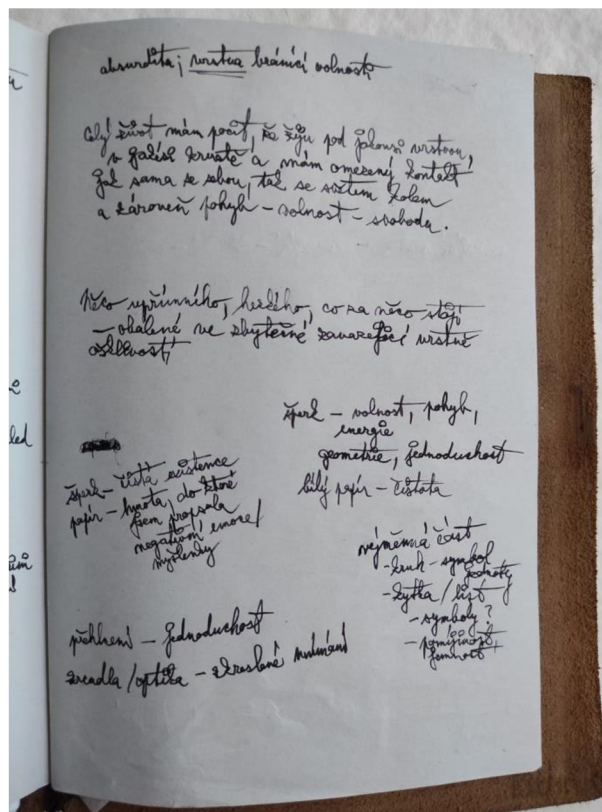 absurdita; vrstva bránící volnosti
Celý život mám pocit, že žiju pod jakousi vrstvou,
v jakési krustě a mám omezený kontakt
jak sama se sebou, tak se světem kolem
a zároveň pohyb – volnost – svoboda.
Něco upřímného, hezkého, co za něco stojí
– obalené ve zbytečné zavazející vrstvě
ošklivosti
šperk – volnost, pohyb,
energie
geometrie, jednoduchost
bílý papír – čistota
šperk – čistá existence
papír – hmota, do které
jsem propsala
negativní emoce/
myšlenky
nejměnná část
- kruh – symbol
jednoty
- kytka / list
- symboly?
- pomíjivost,
jemnost
přehlcení – jednoduchost
zrcadla / optika – zkreslené vnímání
led